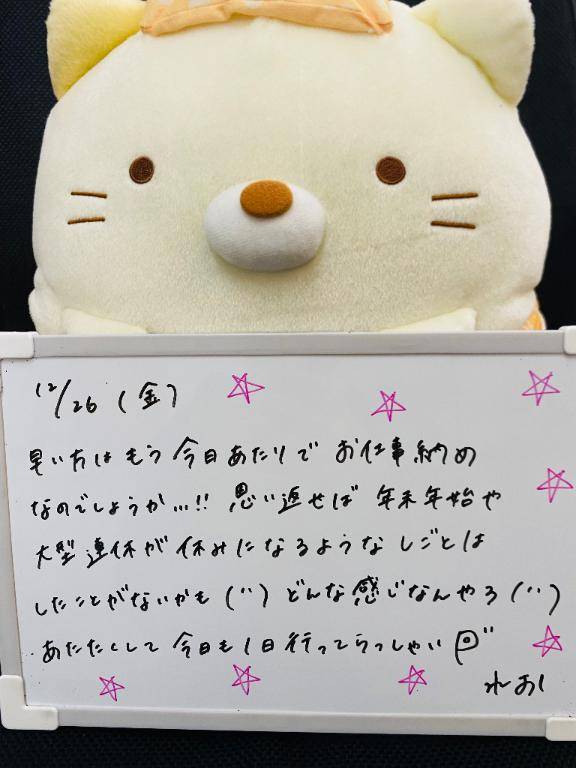 12/26 (金)
早い方はもう今日あたりでお仕事納め
なのでしょうか…!! 思い返せば年末年始や
大型連休が休みになるようなしごとは
したことがないかも(¨) どんな感じなんやろ(¨)
あたたくして今日も1日行ってらっしゃい